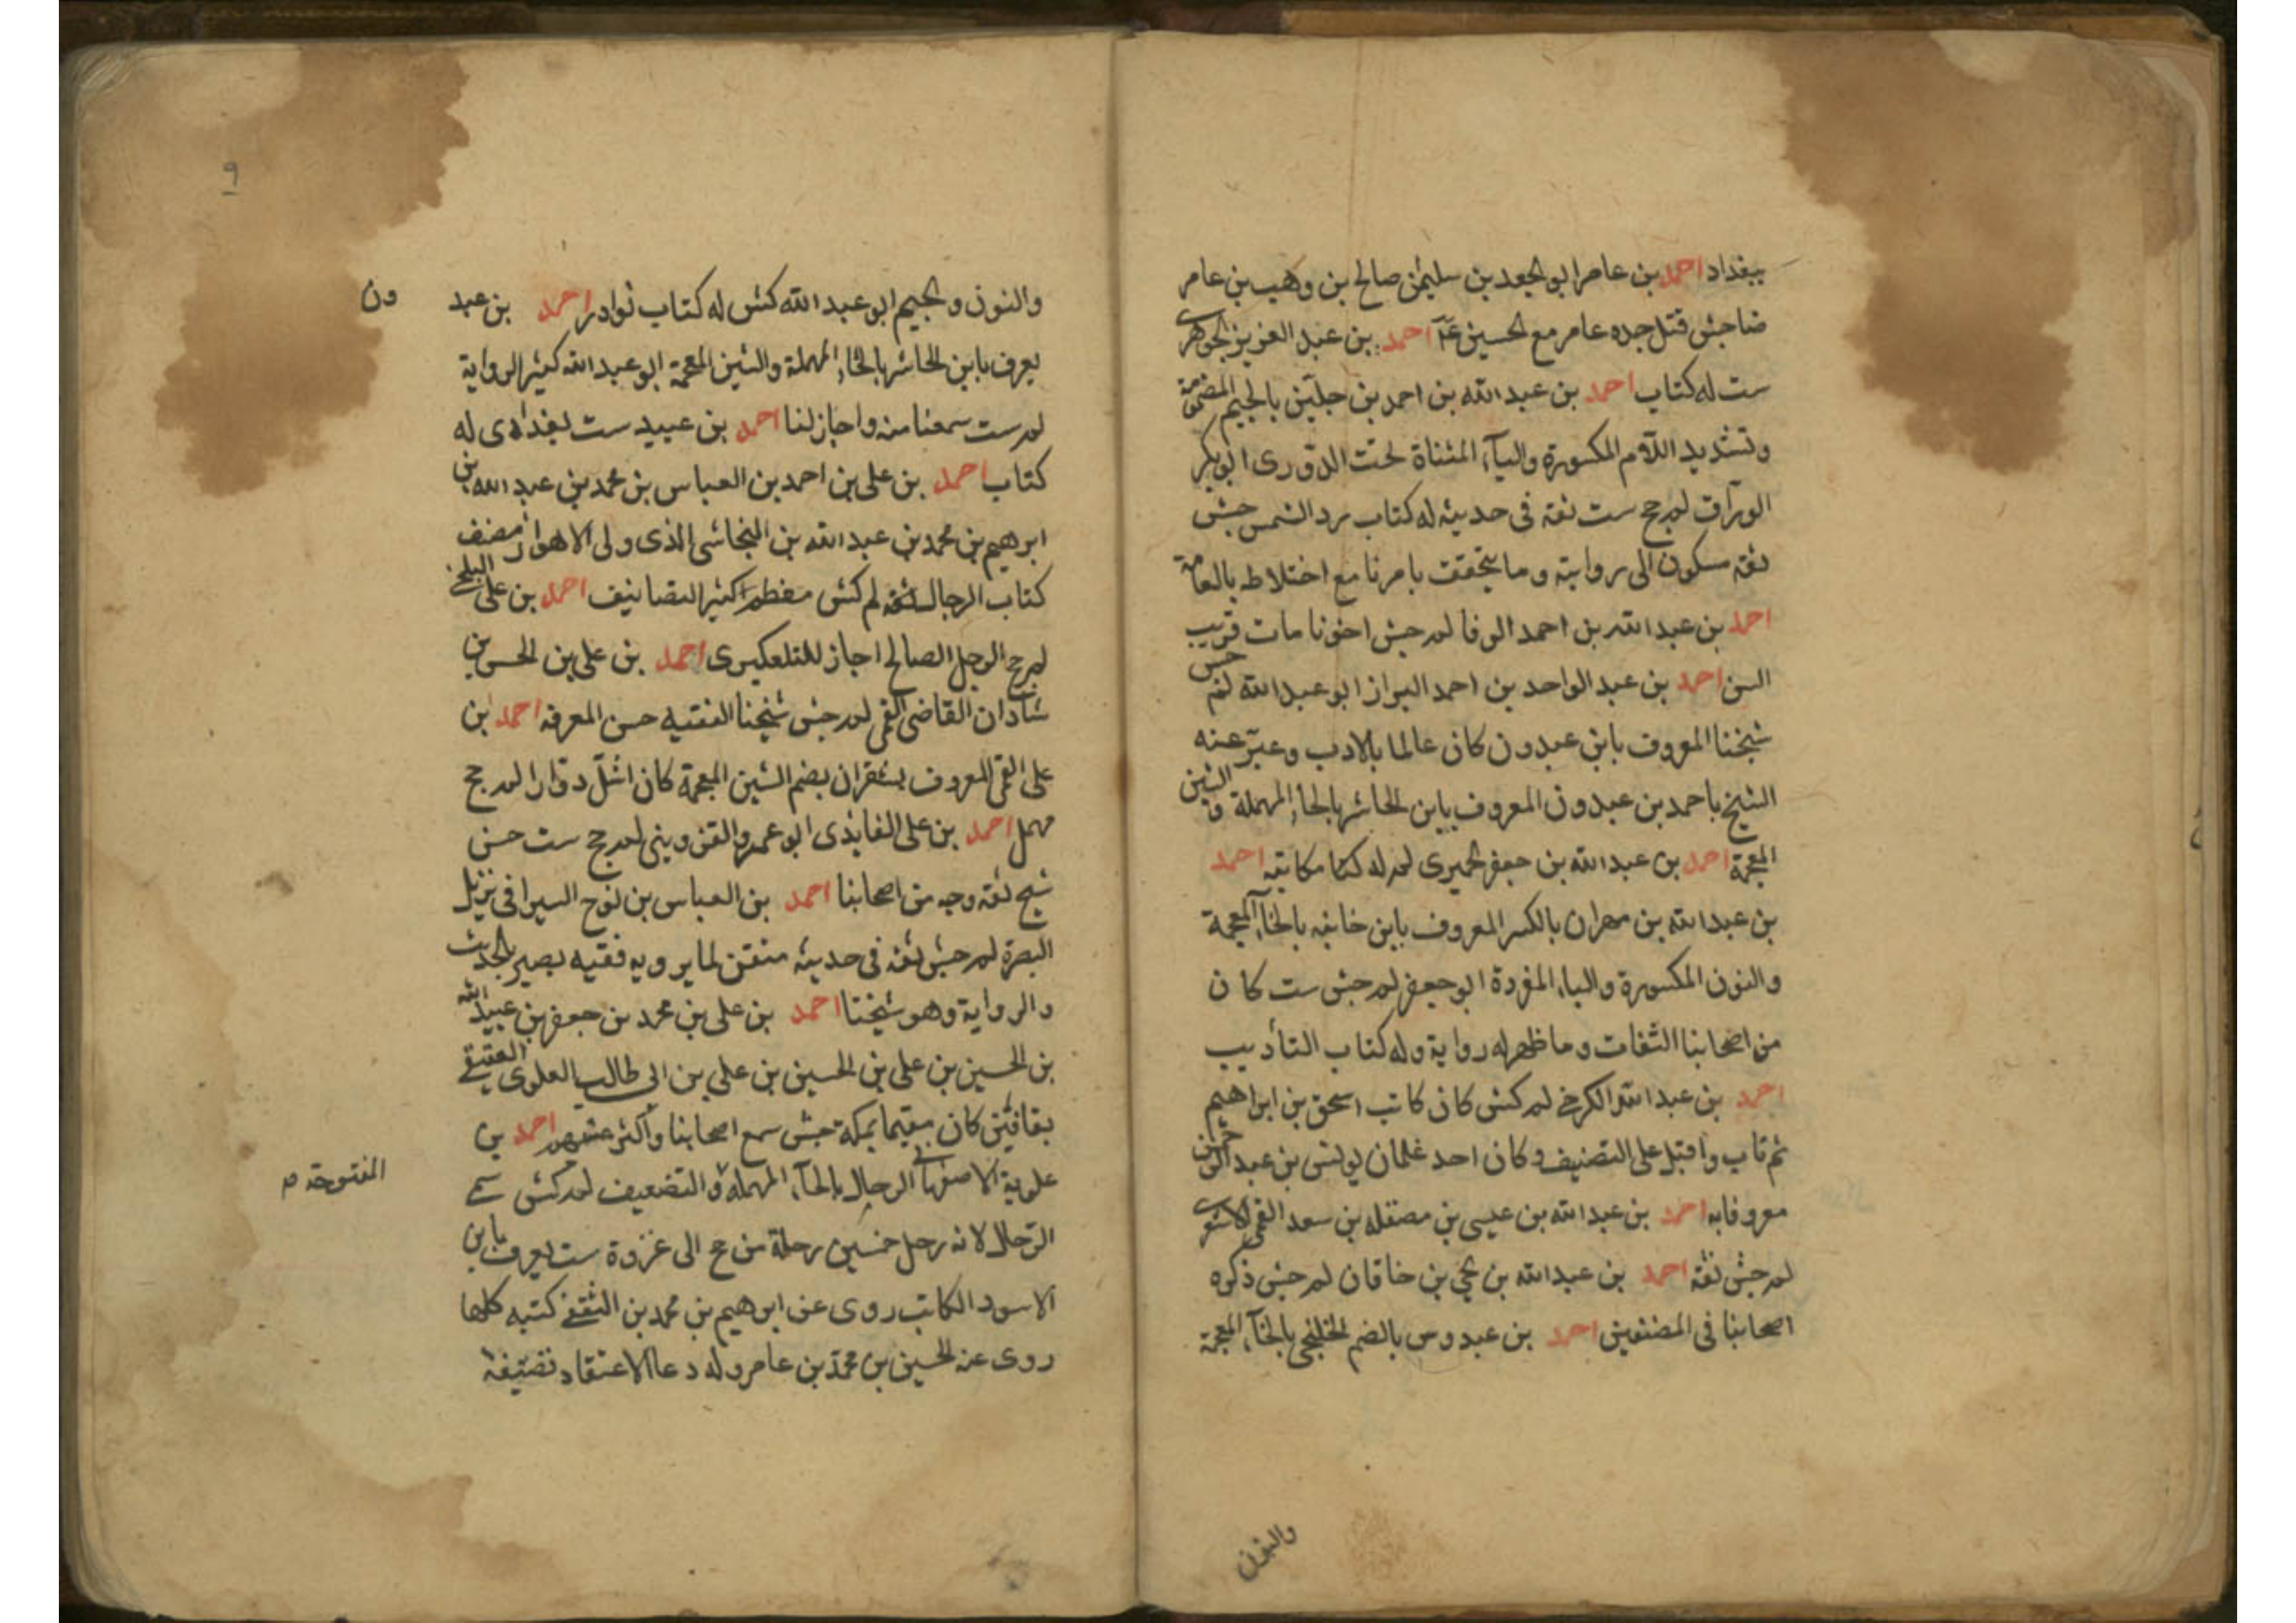 ببغداد احمد بن عامر ابو الجعد بن سليمن صالح بن وهيب بن عامر
ضا جش قتل جده عامر مع الحسين ع احمد بن عبد العزيز الجوهرى
ست له كتاب احمد بن عبد الله بن احمد بن جلين بالجيم المضمومة
وتشديد اللام المكسورة والياء المثناة تحت الدورى ابو بكر
الوراق لم جخ ست ثقة فى حديثه له كتاب رد الشمس جش
ثقة سكون الى روايته وما يتحققت بامرنا مع اختلاطه بالعامة
احمد بن عبد الله بن احمد الرفا لم جش اخونا مات قريب
السن احمد بن عبد الواحد بن احمد البزاز ابو عبد الله لم جش
شيخنا المعروف بابن عبدون كان عالما بالادب وعبر عنه
الشيخ باحمد بن عبدون المعروف بابن الحاشر بالحاء المهملة والشين
المعجمة احمد بن عبد الله بن جعفر الحميرى لم له كتا مكاتبه احمد
بن عبد الله بن مهران بالكسر المعروف بابن خانبه بالخاء المعجمة
والنون المكسورة والباء المفردة ابو جعفر لم جش ست كان
من اصحابنا الثقات وما ظهر له رواية وله كتاب التأديب
احمد بن عبد الله الكرخى لم كش كان كاتب اسحق بن ابراهيم
ثم تاب واقبل على التصنيف وكان احد غلمان يونس بن عبد الرحمن
معروفا به احمد بن عبد الله بن عيسى بن مصقله بن سعد القمى الاشعرى
لم جش ثقة احمد بن عبد الله بن يحيى بن خاقان لم جش ذكره
اصحابنا فى المصنفين احمد بن عبدوس بالضم الخلنجى بالخاء المعجمة
والنون
٩
والنون والجيم ابو عبد الله كش له كتاب نوادر احمد بن عبد
ون
يعرف بابن الحاشر بالحاء المهملة والشين المعجمة ابو عبد الله كثير الرواية
لم ست سمعنا منه واجاز لنا احمد بن عبيد ست بغدادى له
كتاب احمد بن على بن احمد بن العباس بن محمد بن عبد الله بن
ابرهيم بن محمد بن عبد الله بن النجاشى الذى ولى الاهواز مصنف
كتاب الرجال ثقة لم كش كثير التصانيف احمد بن على البلخى
لم جخ الرجل الصالح اجاز للتلعكبرى احمد بن على بن الحسن بن
شاذان القاضى القمى لم جش شيخنا الفقيه حسن المعرفة احمد بن
على القمى المعروف بشقران بضم الشين المعجمة كان اشل دوارا لم جخ
مهمل احمد بن على الفايذى ابو عمرو القزوينى لم جخ ست جش
شيخ ثقة وجه من اصحابنا احمد بن العباس بن نوح السيرافى نزيل
البصرة لم جش ثقة فى حديثه متقن لما يرويه فقيه بصير بالحديث
والرواية وهو شيخنا احمد بن على بن محمد بن جعفر بن عبيد الله
بن الحسين بن على بن الحسين بن على بن ابى طالب العلوى العقيقى
بقافين كان مقيما بمكة جش سمع اصحابنا واكثر عنهم احمد بن
علوية الاصفهانى الرحال بالحاء المهملة والتضعيف لم كش سمى
المفتوحة م
الرحال لانه رحل خمسين رحلة من حج الى غزوة ست يعرف بابن
الاسود الكاتب روى عن ابرهيم بن محمد بن الثقفى كتبه كلها
روى عنه الحسين بن محمد بن عامر وله دعاء الاعتقاد تصنيفه